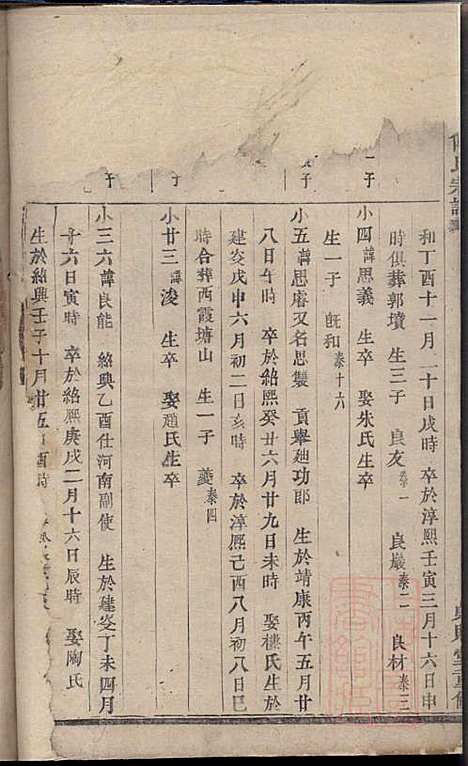 氏宗譜
和丁酉十一月二十日戌時 卒於淳熙壬寅三月十六日申
時俱葬郭墳 生三子 良友泰一 良嚴泰二 良材泰三
小四諱思義 生卒 娶朱氏生卒
生一子 旣和泰十六
小五諱思睿又名思製 貢舉廸功郎 生於靖康丙午五月廿
八日午時 卒於紹熙癸丑六月廿九日未時 娶樓氏生於
建炎戊申六月初二日亥時 卒於淳熙己酉八月初八日巳
時合葬西霞塘山 生一子 義泰四
小廿三諱浚 生卒 娶趙氏生卒
小三六諱良能 紹興乙酉仕河南副使 生於建炎丁未四月
廿六日寅時 卒於紹熙庚戌二月十六日辰時 娶陶氏
生於紹興壬子十月廿五日酉時